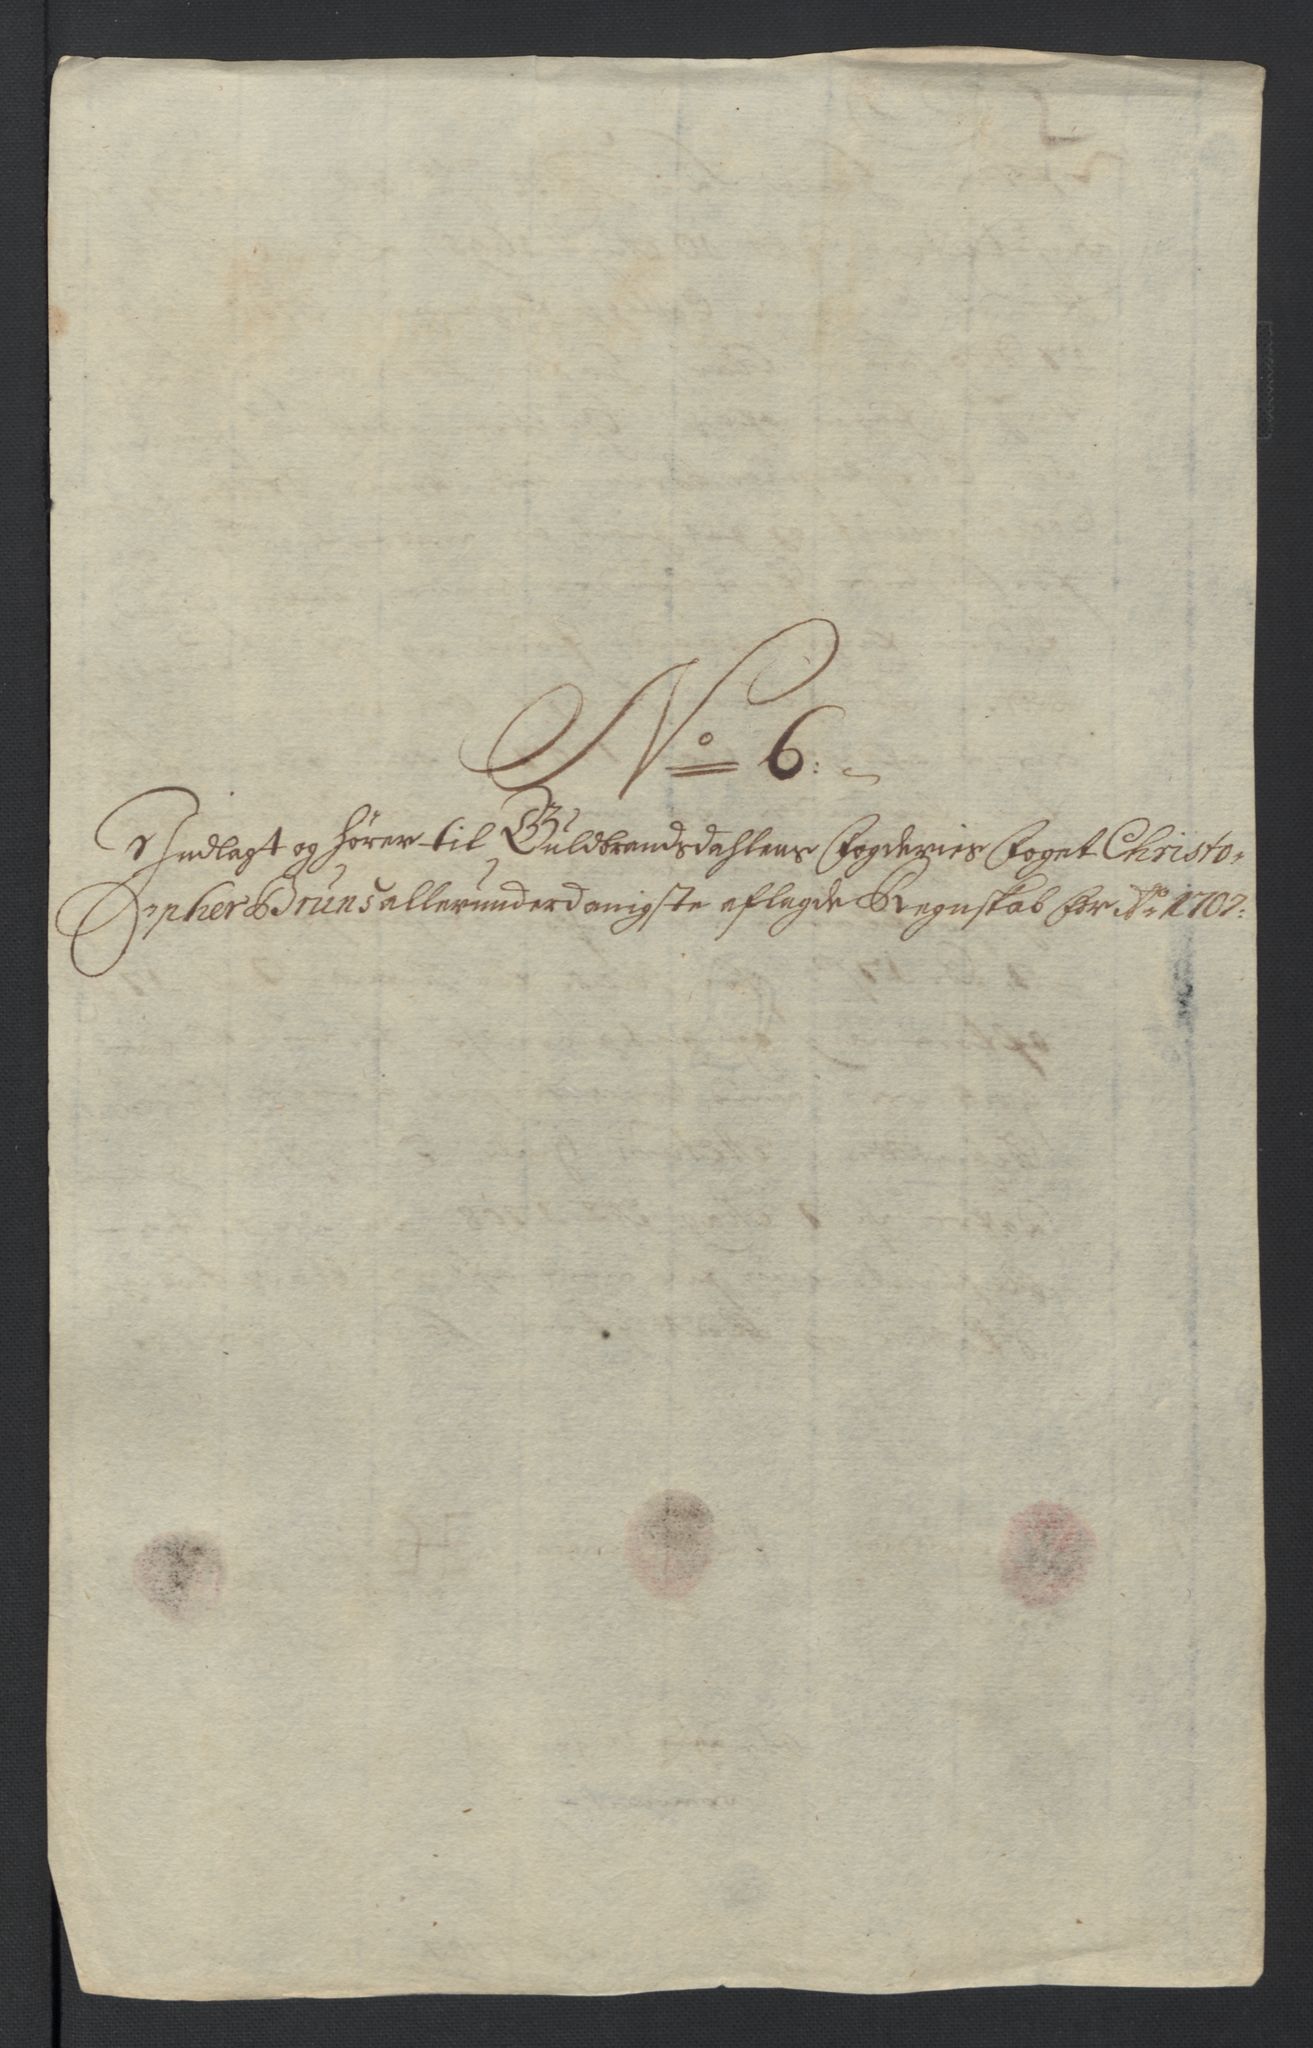 No 6:
Indlagt og hører til Guldbrandsdahlens Fogderies Foget Christo=
pher Bruns allerunderdanigste aflagde Regnskab for Ao 1707: